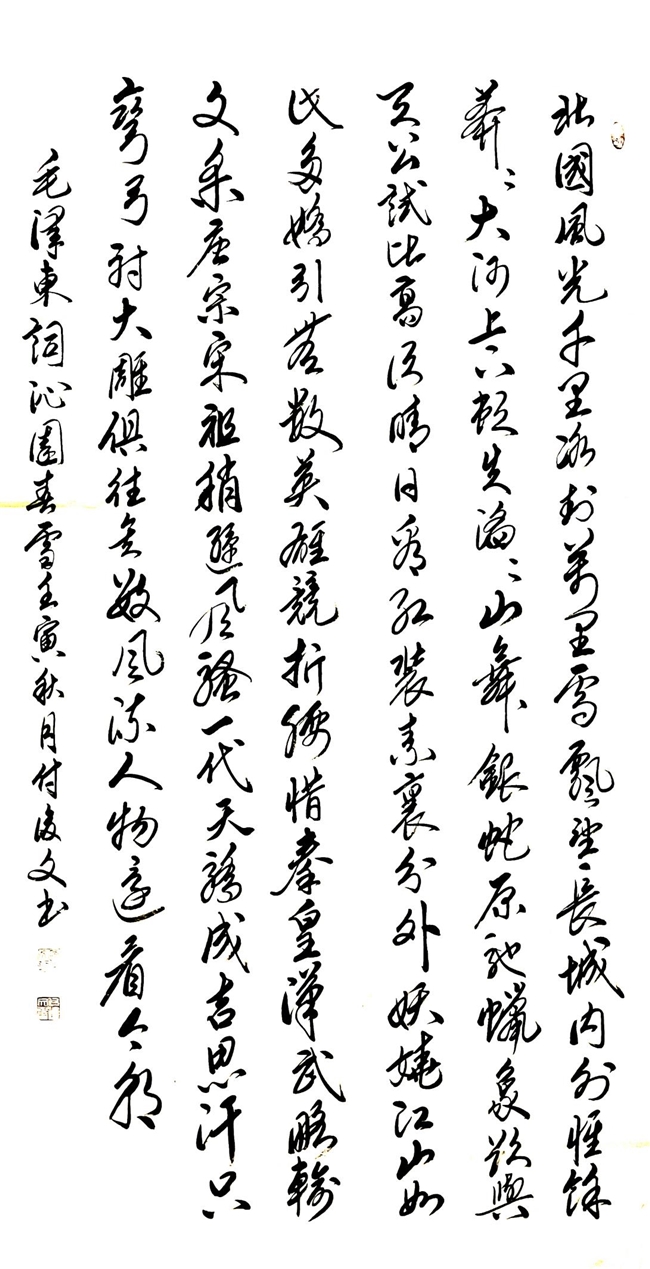 北國風光千里冰封萬里雪飄望長城內外惟餘
莽〻大河上下頓失滔〻山舞銀蛇原馳蠟象欲與
天公試比高須晴日看紅裝素裹分外妖嬈江山如
此多嬌引無數英雄競折腰惜秦皇漢武略輸
文采唐宗宋祖稍遜風騷一代天驕成吉思汗只
彎弓射大雕俱往矣數風流人物還看今朝
毛澤東詞沁園春雪壬寅秋月付俊文书